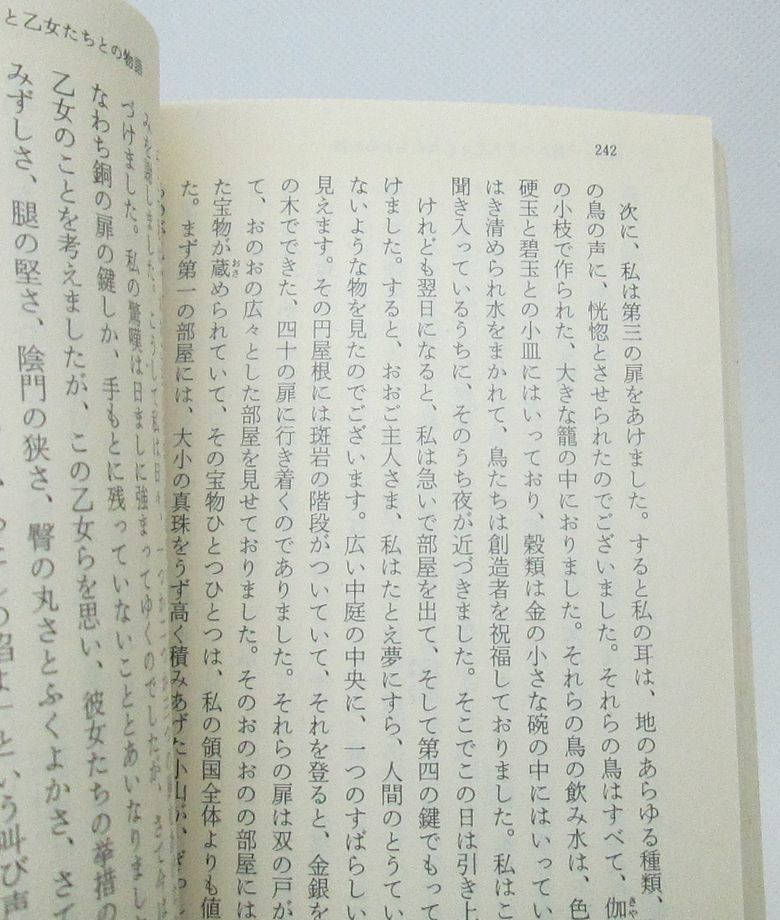 242
次に、私は第三の扉をあけました。すると私の耳は、地のあらゆる種類、
の鳥の声に、恍惚とさせられたのでございました。それらの鳥はすべて、伽
の小枝で作られた、大きな籠の中におりました。それらの鳥の飲み水は、色
硬玉と碧玉との小皿にはいっており、穀類は金の小さな碗の中にはいってい
はき清められ水をまかれて、鳥たちは創造者を祝福しておりました。私はこ
聞き入っているうちに、そのうち夜が近づきました。そこでこの日は引き上
けれども翌日になると、私は急いで部屋を出て、そして第四の鍵でもって
けました。すると、おおご主人さま、私はたとえ夢にすら、人間のとうてい
ないような物を見たのでございます。広い中庭の中央に、一つのすばらしい
見えます。その円屋根には斑岩の階段がついていて、それを登ると、金銀を
の木でできた、四十の扉に行き着くのでありました。それらの扉は双の戸が
て、おのおの広々とした部屋を見せておりました。そのおのおのの部屋には
た宝物が蔵められていて、その宝物ひとつひとつは、私の領国全体よりも値
た。まず第一の部屋には、大小の真珠をうず高く積みあげた小山が、ぎっし
と乙女たちとの物語
づけました。私の驚嘆は日ましに強まってゆくのでしたが、さて
なわち銅の扉の鍵しか、手もとに残っていないこととあいなりまし
乙女のことを考えましたが、この乙女らを思い、彼女たちの挙措の
みずしさ、腿の堅さ、陰門の狭さ、臀の丸さとふくよかさ、さて
という叫び声